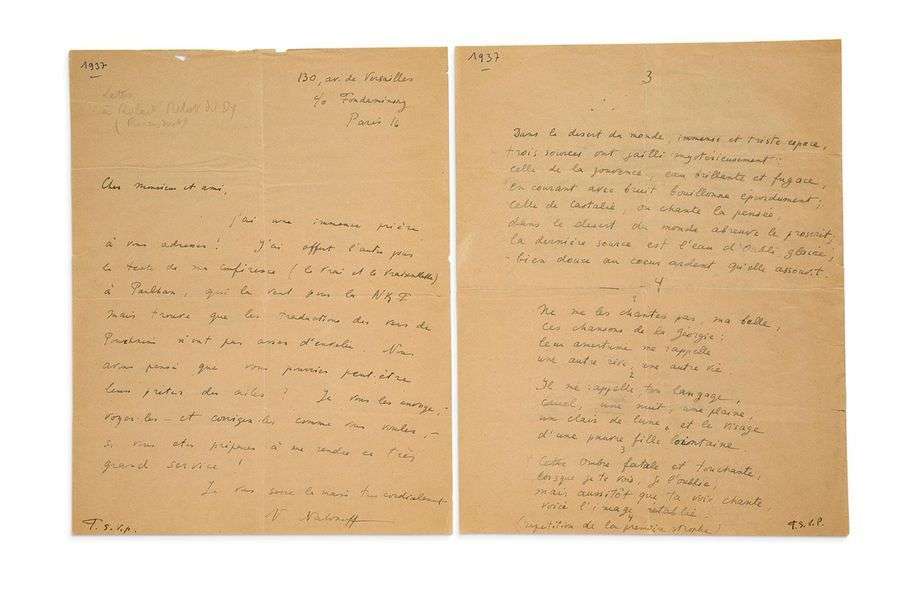 1937
130, av. de Versailles
c/o Fondaminsky
Paris 16
Lettre
à
Cher Monsieur et ami,
J'ai une immense prière
à vous adresser! J'ai offert l'autre jour
le texte de ma conférence (le vrai et le vraisemblable)
à Paulhan, qui la veut pour la NRF
mais trouve que les traductions des vers de
Pouchkine n'ont pas assez d'envolée. Nous
avons pensé que vous pourriez peut-être
leur prêter des ailes? Je vous les envoye, -
voyez-les - et corrigez-les comme vous voulez, -
si vous êtes préparé à me rendre ce très
grand service!
Je vous serre la main très cordialement
V Nabokoff
T. S. V. P.
1937
3
Dans le desert du monde, immense et triste espace,
trois sources ont jailli mystérieusement:
celle de la jouvence, eau brillante et fugace,
en courant avec bruit bouillonne éperdument;
celle de Castalie, où chante la pensée,
dans le desert du monde abreuve le proscrit;
la dernière source est l'eau d'Oubli glacée,
bien douce au coeur ardent qu'elle assouvit.
4
Ne me les chantes pas, ma belle,
ces chansons de la Georgie:
leur amertume me rappelle
une autre rive, une autre vie.
Il me rappelle, ton langage,
cruel, une nuit, une plaine,
un clair de lune, et le visage
d'une pauvre fille lointaine.
Cette ombre fatale et touchante,
lorsque je te vois, je l'oublie,
mais aussitôt que ta voix chante
voici l'image rétablie.
(répétition de la première strophe)
T. S. V. P.